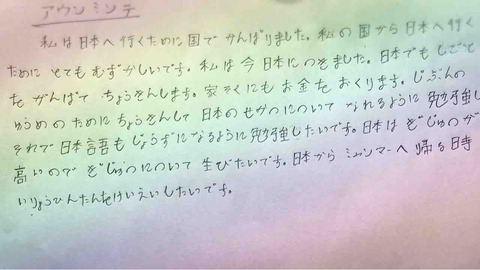 アウンミンテ
私は日本へ行くために国でがんばりました。私の国から日本へ行く
ためにとてもむずかしいです。私は今日本につきました。日本でもしごと
をがんばてちょうせんします。家ぞくにもお金をおくります。じぶんの
ゆうめのためにちょうせんして日本のせかつについてなれるように勉強し
それで日本語もじょうずになるように勉強したいです。日本はぎじゅつが
高いのでぎじゅつについて生びたいです。日本からミャンマーへ帰る日時
いりょうひんたんをけいえいしたいです。